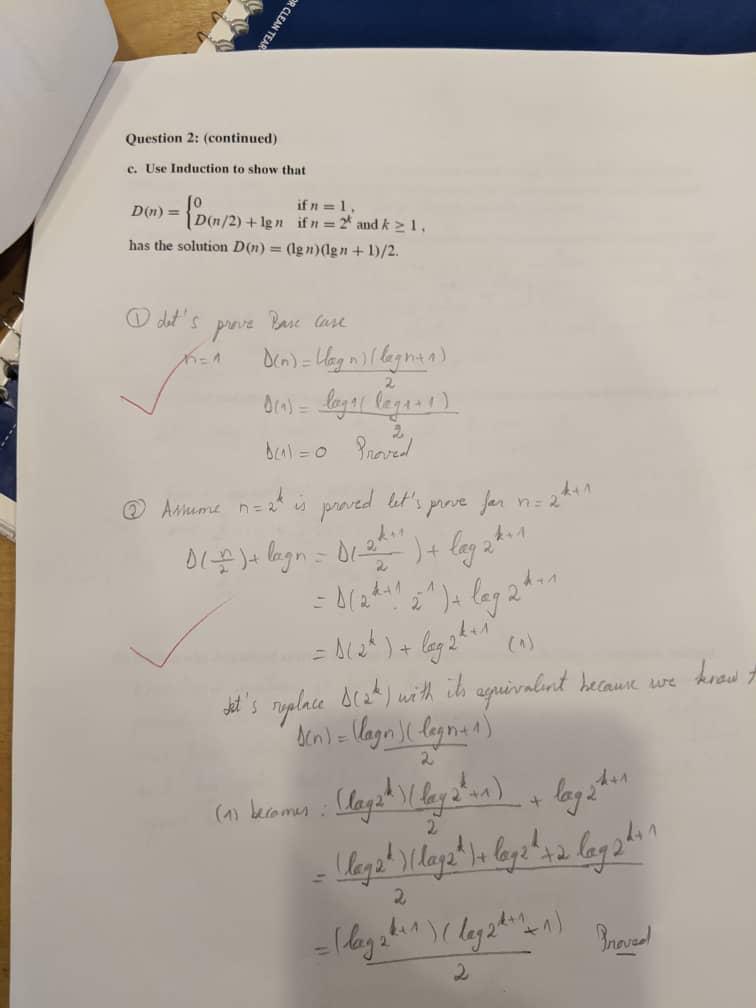 OR CLEAN TEAR
Question 2: (continued)
c. Use Induction to show that
D(n) = { 0 if n = 1,
D(n/2) + lg n if n = 2^k and k ≥ 1,
has the solution D(n) = (lg n)(lg n + 1)/2.
① Let's prove Base case
n=1 D(n) = (log n)(log n+1)/2
D(1) = log 1(log 1+1)/2
D(1) = 0 Proved
② Assume n=2^k is proved let's prove for n=2^{k+1}
D(n/2)+log n = D(2^{k+1}/2) + log 2^{k+1}
= D(2^{k+1}.2^{-1}) + log 2^{k+1}
= D(2^k) + log 2^{k+1} (1)
Let's replace D(2^k) with its equivalent because we know
D(n) = (log n)(log n+1)/2
(1) becomes : (log 2^k)(log 2^k+1)/2 + log 2^{k+1}
= (log 2^k)(log 2^k)+log 2^k+2 log 2^{k+1}/2
= (log 2^{k+1})(log 2^{k+1}+1)/2 Proved